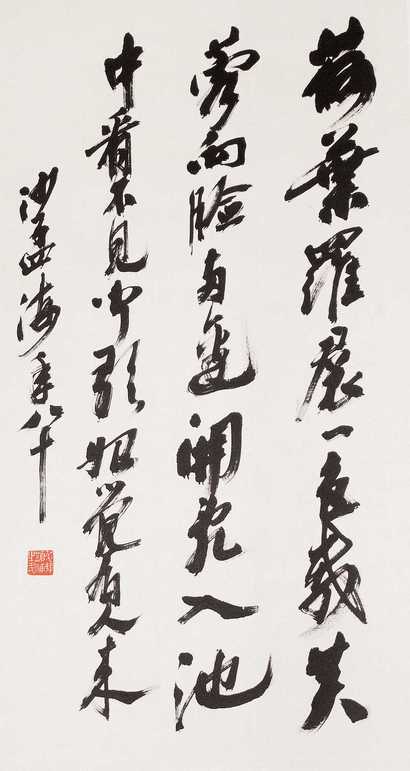 荷葉羅裙一色裁芙
蓉向臉兩邊開亂入池
中看不見聞歌始覺有人来
沙孟海年八十